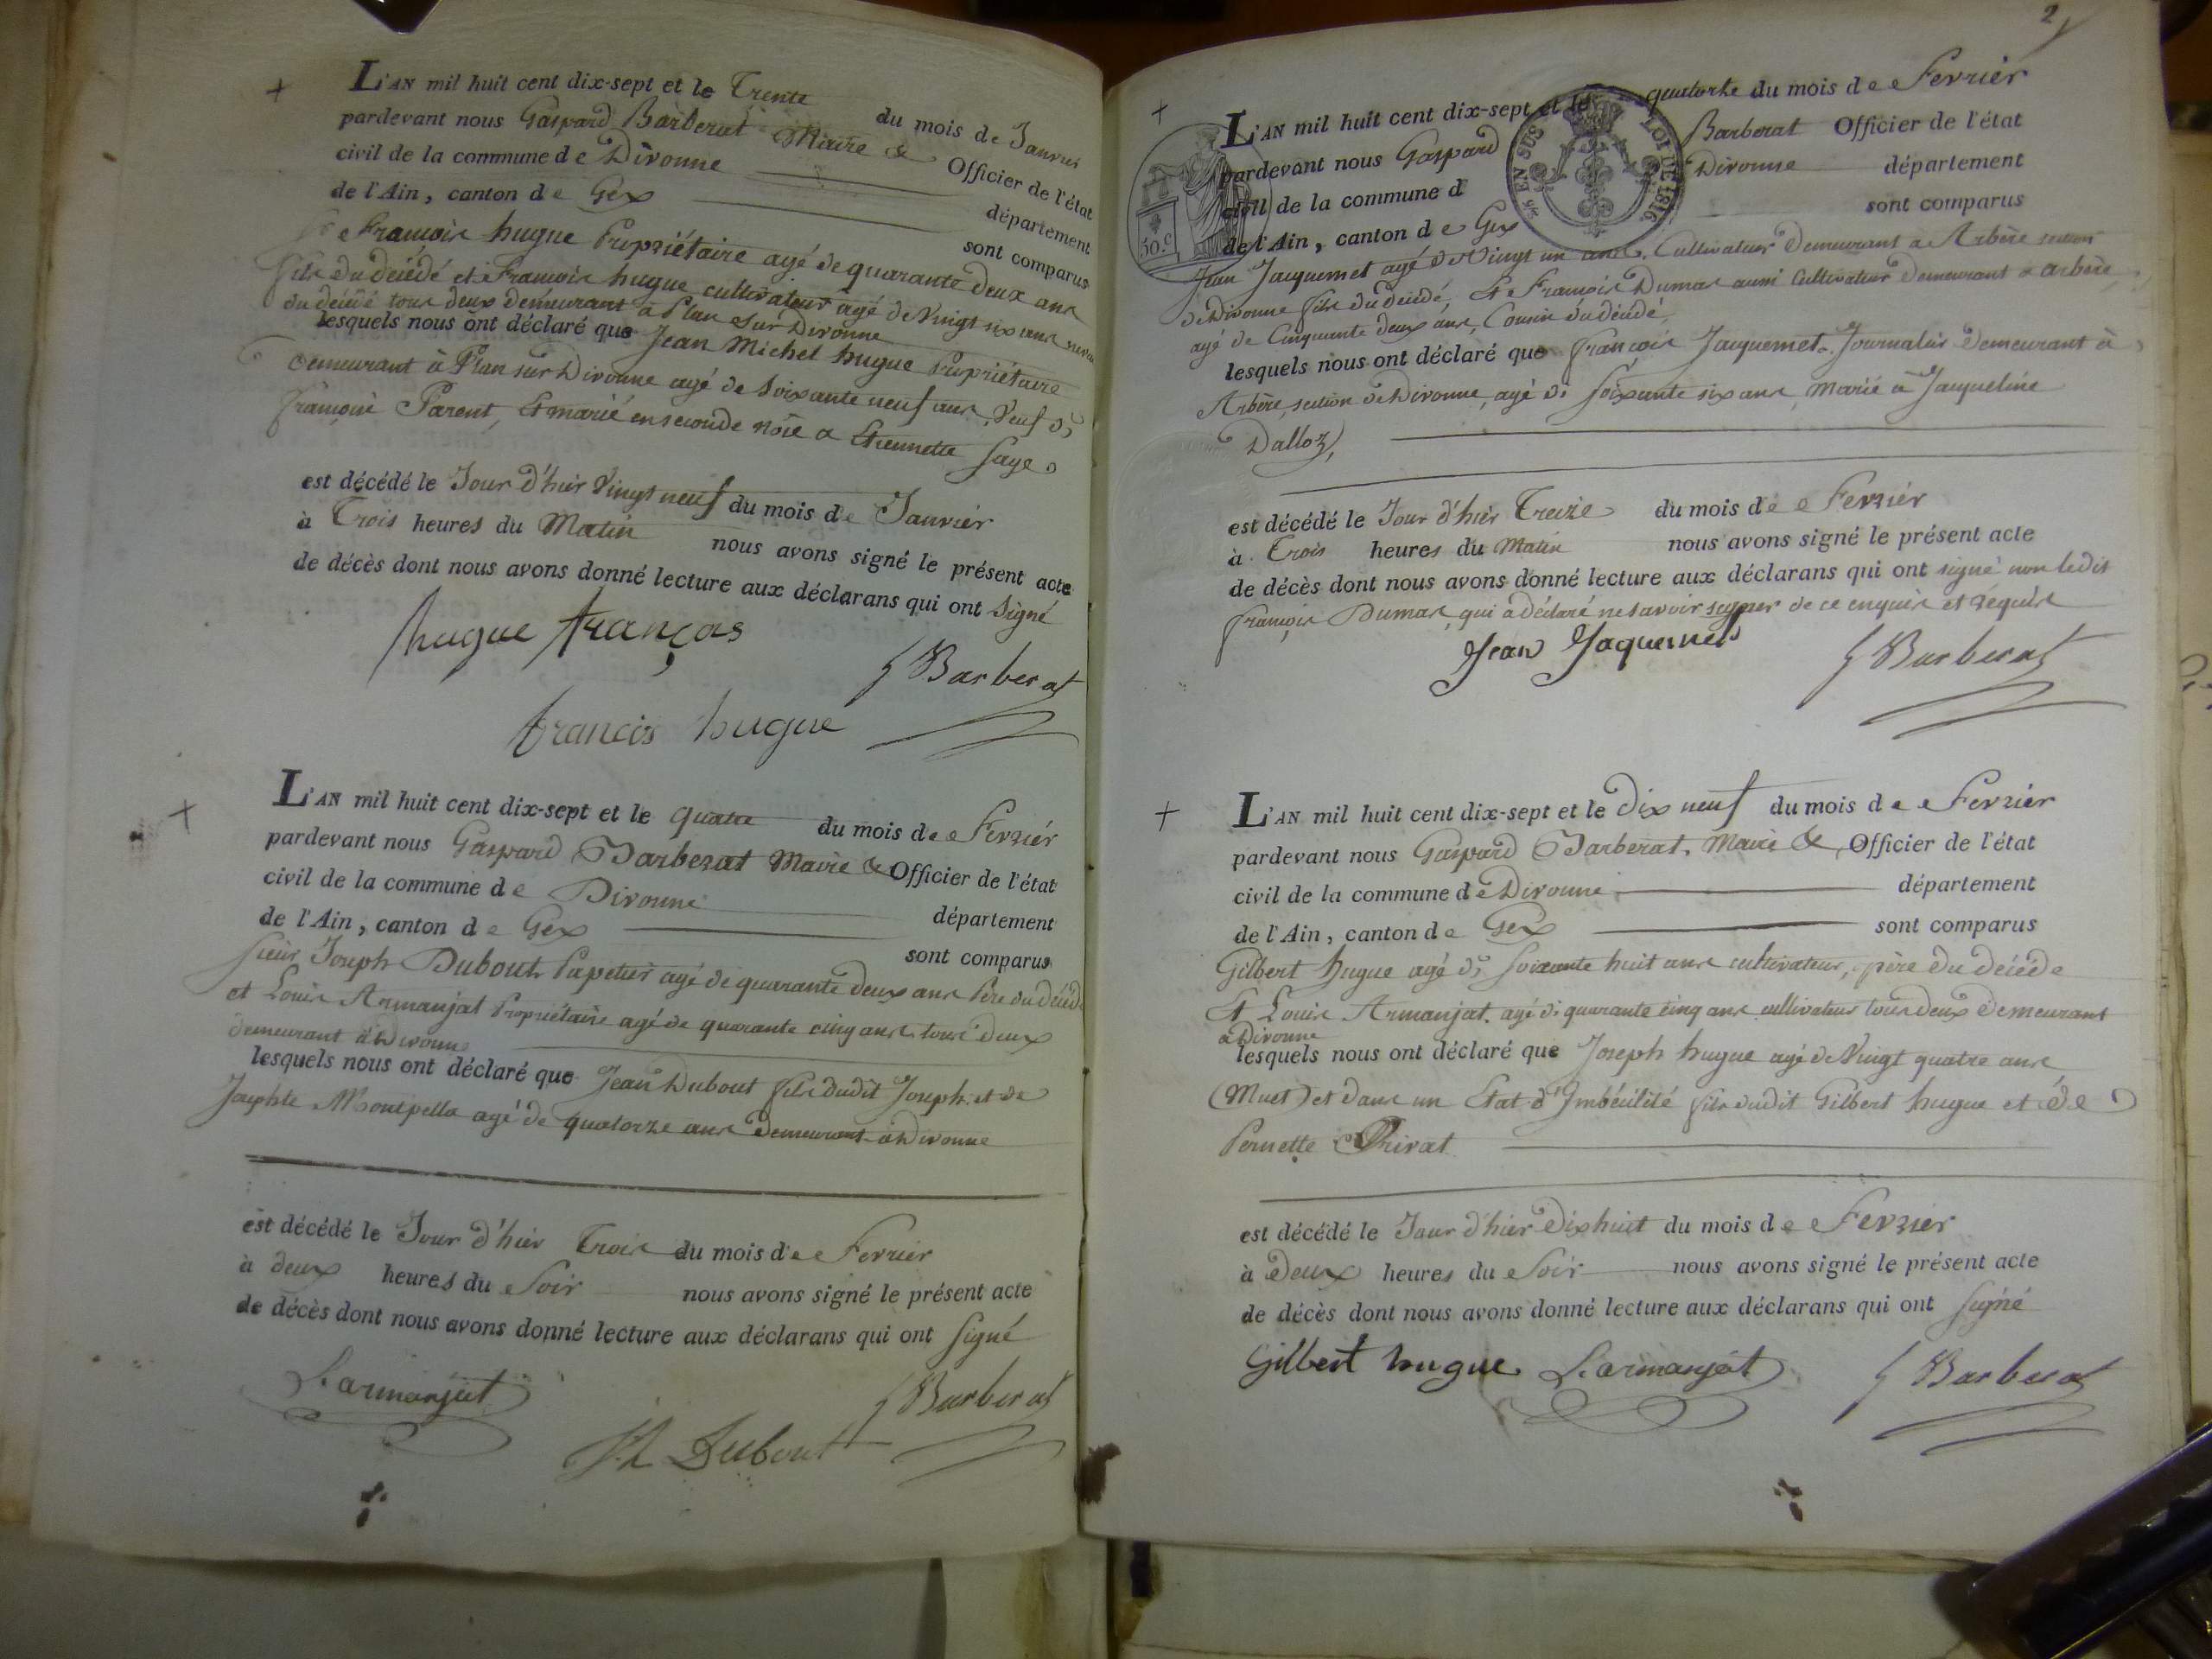 L'AN mil huit cent dix-sept et le Trente du mois de Janvier
pardevant nous Gaspard Barberat Maire & Officier de l'état
civil de la commune de Divonne département
de l'Ain, canton de Gex sont comparus
Sr François hugue Propriétaire agé de quarante deux ans
fils du décédé et François hugue cultivateur agé de Vingt six ans neveu
du décédé tous deux demeurant à Plan sur Divonne
lesquels nous ont déclaré que Jean Michel hugue Propriétaire
demeurant à Plan sur Divonne agé de Soixante neuf ans, Veuf de
françoise Parent, Et marié en seconde noce a Etiennette Sage
est décédé le Jour d'hier Vingt neuf du mois de Janvier
à Trois heures du Matin nous avons signé le présent acte
de décès dont nous avons donné lecture aux déclarans qui ont Signé
hugue françois
G Barberat
francois hugue
L'AN mil huit cent dix-sept et le quatre du mois de Fevrier
pardevant nous Gaspard Barberat Maire & Officier de l'état
civil de la commune de Divonne département
de l'Ain, canton de Gex sont comparus
Sieur Joseph Dubout Papetier agé de quarante deux ans Père du décédé
et Louis Armanjat Propriétaire agé de quarante cinq ans tous deux
demeurant à Divonne
lesquels nous ont déclaré que Jean Dubout fils dudit Joseph et de
Josephte Montpella agé de quatorze ans demeurant à Divonne
est décédé le Jour d'hier Trois du mois de Fevrier
à deux heures du Soir nous avons signé le présent acte
de décès dont nous avons donné lecture aux déclarans qui ont Signé
L. armanjat
G Barberat
Dubout
2
L'AN mil huit cent dix-sept et le quatorze du mois de Fevrier
pardevant nous Gaspard Barberat Officier de l'état
civil de la commune d Divonne département
de l'Ain, canton de Gex sont comparus
EN SUS LOI DE 1816
50.c
Jean Jacquemet agé de Vingt un ans, Cultivateur demeurant a Arbère section
de Divonne fils du décédé, Et François Dumas aussi Cultivateur demeurant a arbère,
agé de Cinquante deux ans, Cousin du décédé,
lesquels nous ont déclaré que françois Jacquemet Journalier demeurant à
Arbère, section de Divonne, agé de soixante six ans, Marié à Jacqueline
Dalloz,
est décédé le Jour d'hier Treize du mois de Fevrier
à Trois heures du Matin nous avons signé le présent acte
de décès dont nous avons donné lecture aux déclarans qui ont signé non ledit
françois Dumas, qui a déclaré ne savoir signer de ce enquis et requis
Jean Jaquemet
G Barberat
L'AN mil huit cent dix-sept et le Dix neuf du mois de Fevrier
pardevant nous Gaspard Barberat, Maire & Officier de l'état
civil de la commune de Divonne département
de l'Ain, canton de Gex sont comparus
Gilbert hugue agé de Soixante huit ans cultivateur, père du décédé
Et Louis Armanjat. agé de quarante cinq ans cultivateur tous deux demeurant
à Divonne
lesquels nous ont déclaré que Joseph hugue agé de Vingt quatre ans
(Muet) et dans un Etat d'Imbécilité fils dudit Gilbert hugue et de
Pernette Privat
est décédé le Jour d'hier Dixhuit du mois de Fevrier
à Deux heures du Soir nous avons signé le présent acte
de décès dont nous avons donné lecture aux déclarans qui ont signé
Gilbert hugue L. armanjat
G Barberat